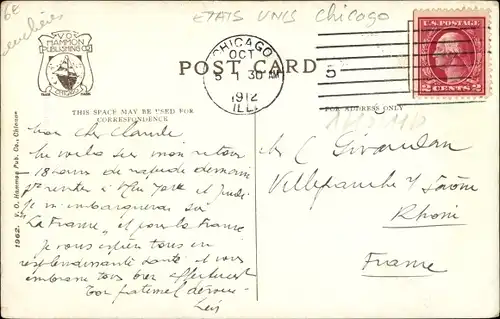 6€
enchères
ETATS UNIS Chicago
V.O.
HAMMON
PUBLISHING CO
CHICAGO
POST CARD
CHICAGO
OCT
30 AM
1912
ILL.
5
U.S. POSTAGE
2 CENTS 2
THIS SPACE MAY BE USED FOR
CORRESPONDENCE
FOR ADDRESS ONLY
Mon cher Claude
Me voilà sur mon retour
18 heures de rapide demain
New York et jeudi
je m'embarquerai sur
La France, et pour la France
Je vous espère tous en
resplendissante santé et vous
embrasse tous bien affectueusement
Ton
M C Girardon
Villefranche s/ Saône
Rhône
France
1962. V. O. Hammon Pub. Co., Chicago